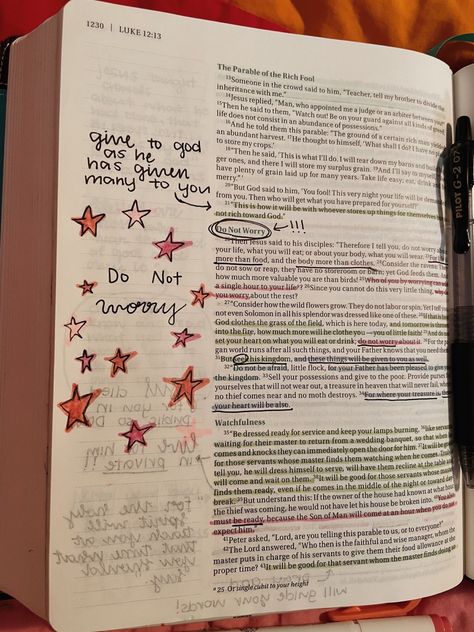 1230 | LUKE 12:13
give to god
as he
has given
many to you
Do Not
worry
The Parable of the Rich Fool
13Someone in the crowd said to him, "Teacher, tell my brother to divide the
inheritance with me."
14Jesus replied, "Man, who appointed me a judge or an arbiter between you?"
15Then he said to them, "Watch out! Be on your guard against all kinds of greed;
life does not consist in an abundance of possessions."
16And he told them this parable: "The ground of a certain rich man yielded
an abundant harvest. 17He thought to himself, 'What shall I do? I have no place
to store my crops.'
18"Then he said, 'This is what I'll do. I will tear down my barns and build bigger
ones, and there I will store my surplus grain. 19And I'll say to myself, "You
have plenty of grain laid up for many years. Take life easy; eat, drink and be
merry."'
20"But God said to him, 'You fool! This very night your life will be demanded
from you. Then who will get what you have prepared for yourself?'
21"This is how it will be with whoever stores up things for themselves but is
not rich toward God."
Do Not Worry !!!
22Then Jesus said to his disciples: "Therefore I tell you, do not worry about
your life, what you will eat; or about your body, what you will wear. 23For life is
more than food, and the body more than clothes. 24Consider the ravens: They
do not sow or reap, they have no storeroom or barn; yet God feeds them. And
how much more valuable you are than birds! 25Who of you by worrying can add
a single hour to your life? 26Since you cannot do this very little thing, why do
you worry about the rest?
27"Consider how the wild flowers grow. They do not labor or spin. Yet I tell you,
not even Solomon in all his splendor was dressed like one of these. 28If that is how
God clothes the grass of the field, which is here today, and tomorrow is thrown
into the fire, how much more will he clothe you—you of little faith! 29And do not
set your heart on what you will eat or drink; do not worry about it. 30For the pagan
world runs after all such things, and your Father knows that you need them.
31But seek his kingdom, and these things will be given to you as well.
32"Do not be afraid, little flock, for your Father has been pleased to give you
the kingdom. 33Sell your possessions and give to the poor. Provide purses for
yourselves that will not wear out, a treasure in heaven that will never fail, where
no thief comes near and no moth destroys. 34For where your treasure is, there
your heart will be also.
Watchfulness
35"Be dressed ready for service and keep your lamps burning, 36like servants
waiting for their master to return from a wedding banquet, so that when he
comes and knocks they can immediately open the door for him. 37It will be good
for those servants whose master finds them watching when he comes. Truly I
tell you, he will dress himself to serve, will have them recline at the table and
will come and wait on them. 38It will be good for those servants whose master
finds them ready, even if he comes in the middle of the night or toward daybreak.
39But understand this: If the owner of the house had known at what hour
the thief was coming, he would not have let his house be broken into. 40You also
must be ready, because the Son of Man will come at an hour when you do not
expect him."
41Peter asked, "Lord, are you telling this parable to us, or to everyone?"
42The Lord answered, "Who then is the faithful and wise manager, whom the
master puts in charge of his servants to give them their food allowance at the
proper time? 43It will be good for that servant whom the master finds doing so
a 25 Or single cubit to your height
PILOT G-2